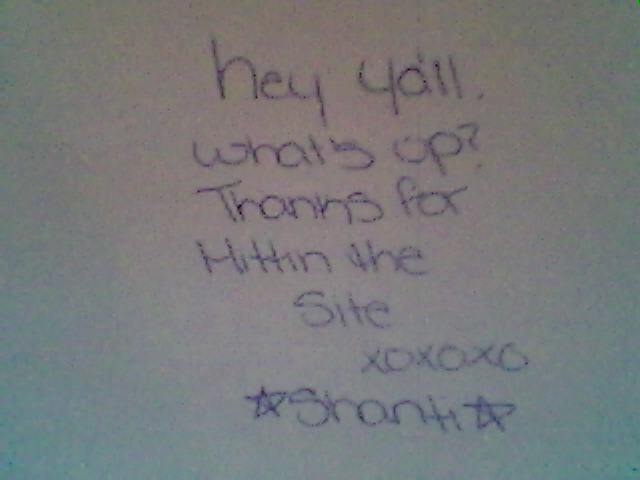 hey ya'll.
what's up?
Thanks for
Hittin the
Site
xoxoxo
☆Shanti☆